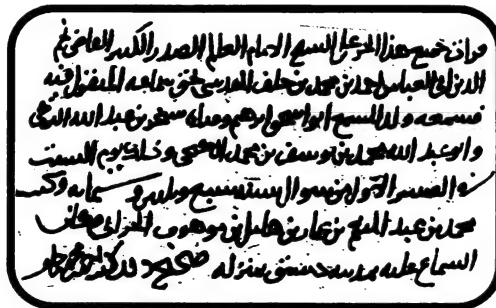 قرأت جميع هذا الجزء على الشيخ الامام العالم الصدر الكبير القاضي نجم
الدين ابي العباس احمد بن محمد بن خلف المقدسي بحق سماعه المنقول فيه
فسمعه ولد الشيخ ابو اسحق ابرهيم وفتاه سنجر بن عبد الله التركي
وابو عبد الله محمد بن يوسف بن محمد وذلك يوم السبت
في العشر الاول من شوال سنة سبع وثلثين وستمايه وكتب
محمد بن عبد المنعم بن عمار بن هامل بن موهوب الحراني وكان
السماع عليه بمدينة دمشق بمنزله صح